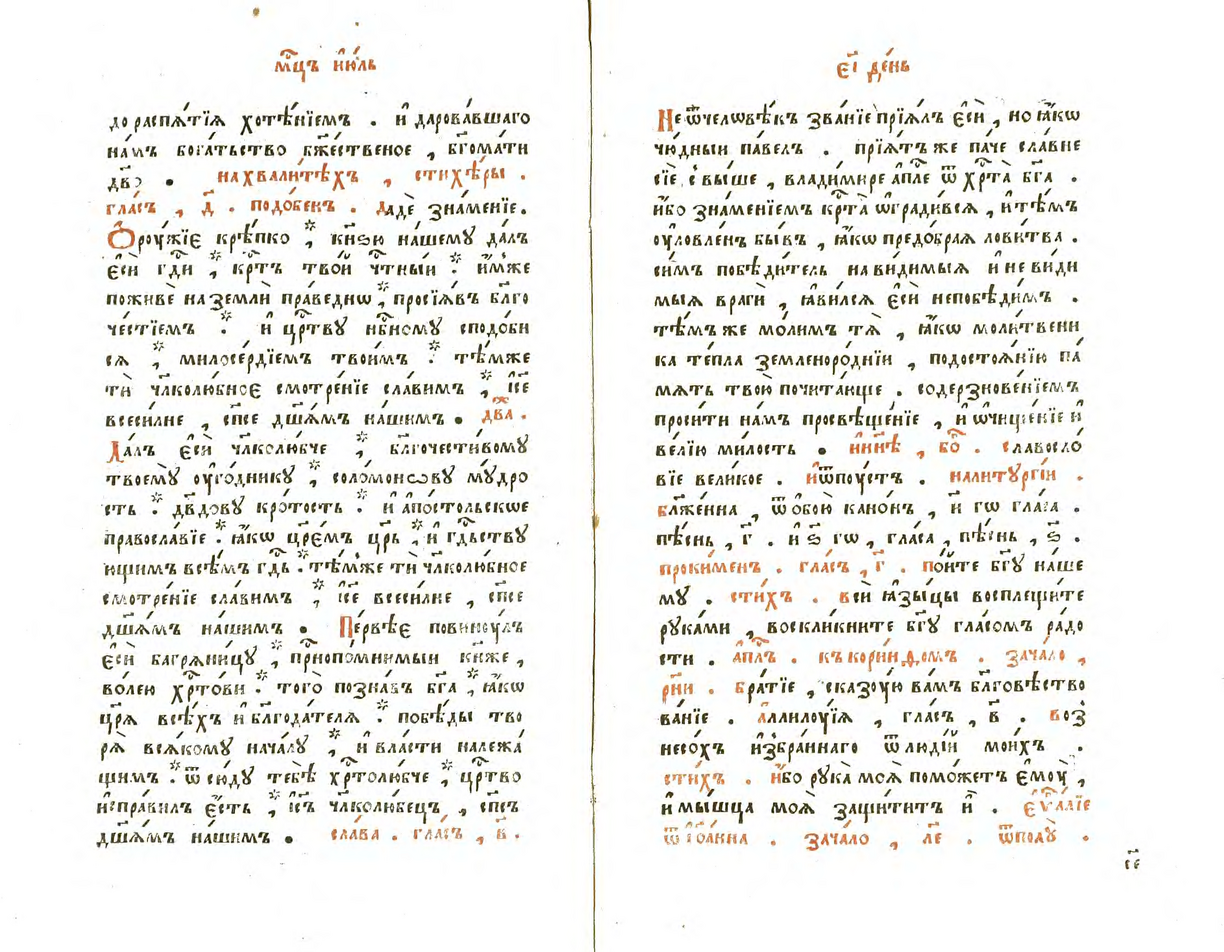 мⷭ҇цъ їю́ль
до распѧ́тїѧ хотѣ́нїемъ . и҆ дарова́вшаго
на́мъ бога́тьство бж҃ественое , бг҃ома́ти
дв҃о . на хвали́техъ , стихѣ́ры .
гла́съ , д҃ . подо́бенъ . Дадѐ зна́менїе .
Ѻ҆рꙋ́жїе крѣ́пко , кнѧ́ꙁю на́шемꙋ да́лъ
є҆сѝ гдⷭ҇и , крⷭ҇тъ тво́й чтⷭ҇ны́й . и҆́мже
поживѐ на землѝ пра́веднѡ , просїѧ́въ бл҃го
че́стїемъ . и҆ црⷭ҇твꙋ нбⷭ҇номꙋ сподо́би
сѧ , милосе́рдїемъ твои́мъ . тѣ́мже
тѝ чл҃колю́бное смотре́нїе сла́вимъ , і҆с҃е
всеси́лне , сп҃се дш҃а́мъ на́шимъ . два .
Да́лъ є҆сѝ чл҃колю́бче , бл҃гочести́вомꙋ
твоемꙋ̀ ᲂу҆го́дникꙋ , соломо́новꙋ мꙋ́дро
сть . дв҃дову кро́тость . и҆ а҆по́стольское
правосла́вїе . ꙗ҆́кѡ цр҃е́мъ цр҃ь , и҆ гдⷭ҇ьствꙋ
ющимъ всѣ́мъ гдⷭ҇ь . тѣ́мже тѝ чл҃колю́бное
смотре́нїе сла́вимъ , і҆с҃е всеси́лне , сп҃се
дш҃а́мъ на́шимъ . Пе́рвѣе повинꙋ́лъ
є҆сѝ багрѧни́цꙋ , приснопо́мнимыи кнѧ́же ,
во́лею хрⷭ҇то́ви . того̀ позна́въ бг҃а , ꙗ҆́кѡ
цр҃ѧ̀ всѣ́хъ и҆ бл҃года́телѧ . побѣ́ды тво
рѧ̀ всѧ́комꙋ нача́лꙋ , и҆ вла́сти належа́
щимъ . ѿсю́дꙋ тебѣ̀ хрⷭ҇толю́бче , црⷭ҇тво
и҆спра́вилъ є҆́сть , і҆с҃ъ чл҃колю́бецъ , сп҃съ
дш҃а́мъ на́шимъ . сла́ва . гла́съ , в҃ .
є҃і де́нь
Не ѿ челѡвѣ́къ зва́нїе прїѧ́лъ є҆сѝ , но ꙗ҆́кѡ
чю́дныи па́велъ . прїѧ́тъ же па́че сла́вне
сїѐ свы́ше , влади́мире а҆пⷭ҇ле ѿ хрⷭ҇та̀ бг҃а .
и҆́бо зна́менїемъ крⷭ҇та̀ ѡ҆гради́всѧ , и҆ тѣ́мъ
ᲂу҆ло́вленъ бы́въ , ꙗ҆́кѡ предо́браѧ лови́тва .
си́мъ побѣди́тель на ви́димыѧ и҆ неви́ди
мыѧ врагѝ , ꙗ҆ви́лсѧ є҆сѝ непобѣди́мъ .
тѣ́мъ же мо́лимъ тѧ̀ , ꙗ҆́кѡ моли́твени
ка те́пла земленоро́днїи , подостоѧ́нїю па́
мѧть твою̀ почита́юще . содерзнове́нїемъ
проси́ти на́мъ просвѣще́нїе , и҆ ѡ҆чище́нїе и҆
ве́лїю ми́лость . ны́нѣ , бо . славосло́
вїе вели́кое . и҆ ѿпꙋ́стъ . на литꙋргі́и .
Бл҃же́нна , ѿ ѻ҆бою̀ кано́нъ , и҆ гѡ гла́са .
пѣ́снь , г҃ . и҆ ѕ҃гѡ , гла́са , пѣ́снь , ѕ҃ .
проки́менъ . гла́съ , г҃ . По́йте бг҃ꙋ на́ше
мꙋ . сти́хъ . всѝ ꙗ҆зы́цы восплещи́те
рꙋка́ми , воскли́кните бг҃ꙋ гла́сомъ ра́до
сти . а҆пⷭ҇лъ . къ кори́нѳомъ . зача́ло ,
рн҃и . Бра́тїе , сказꙋ́ю ва́мъ бл҃говѣство
ва́нїе . А҆ллилꙋ́їѧ , гла́съ , в҃ . Воз
несо́хъ и҆збра́ннаго ѿ людїи мои́хъ .
сти́хъ . и҆́бо рꙋка̀ моѧ̀ помо́жетъ є҆мꙋ̀ ,
и҆ мы́шца моѧ̀ защити́тъ и҆̀ . є҆ѵⷢ҇а́лїе
ѿ і҆ѡа́нна . зача́ло , ле҃ . ѿ полꙋ̀ .